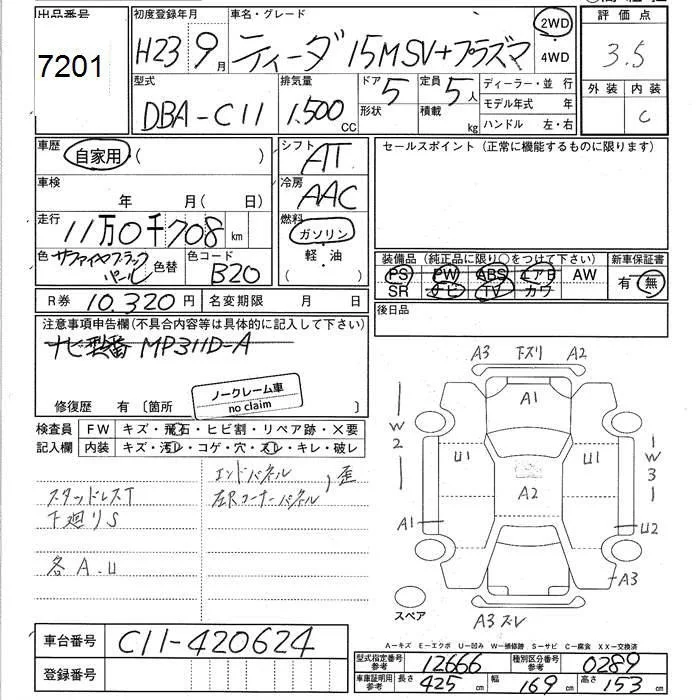 出品番号
7201
初度登録年月
H23 9月
車名・グレード
ティーダ 15M SV+プラズマ
2WD
4WD
評価点
3.5
外装 内装
C
型式
DBA-C11
排気量
1.500 CC
ドア 5
形状
定員 5人
積載 kg
ディーラー・並行
モデル年式 年
ハンドル 左・右
車歴
自家用 ( )
車検
年 月( 日)
走行
11万0千708 km
色 サファイヤブラックパール
色替
色コード
B20
シフト
AT
冷房
AAC
燃料
ガソリン
軽・油
( )
セールスポイント (正常に機能するものに限ります)
装備品 (純正品に限り○をつけて下さい)
PS PW ABS エアB AW
SR ナビ TV カワ
新車保証書
有 無
R券 10.320円
名変期限 月 日
後日品
注意事項申告欄(不具合内容等は具体的に記入して下さい)
ナビ型番 MP311D-A
ノークレーム車
no claim
修復歴 有 〔箇所 〕
検査員 FW キズ・飛石・ヒビ割・リペア跡・X要
記入欄 内装 キズ・汚レ・コゲ・穴・スレ・キレ・破レ
エンドパネル
左Rコーナーパネル , 歪
スタッドレスT
下廻りS
各A.U
A3 下ズリ A2
A1
W2
U1
U1
W3
A2
A1
U2
A3
スペア
A3 ズレ
A-キズ E-エクボ U-凹み W-補修跡 S-サビ C-腐食 XX-交換済
車台番号 C11-420624
登録番号
型式指定番号 参考 12666
種別区分番号 参考 0289
車庫証明用 参考 長さ 425 cm 幅 169 cm 高さ 153 cm